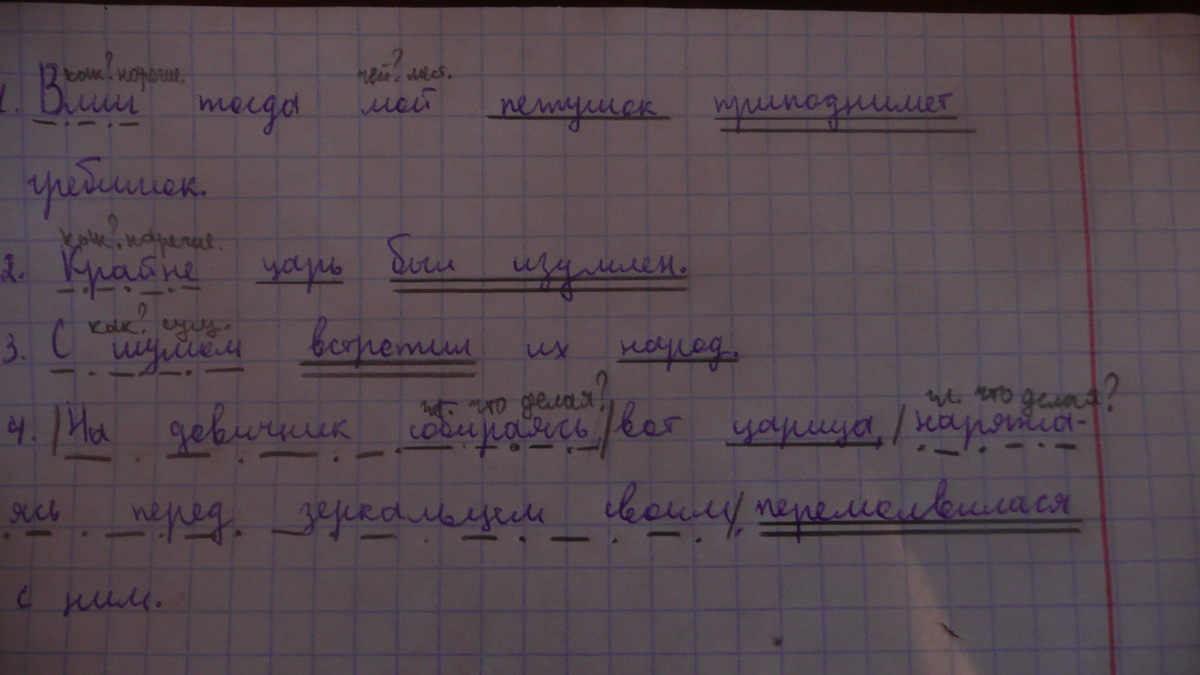 как? наречие. чей? мест.
1. Вмиг тогда мой петушок приподнимет
гребешок.
как? наречие.
2. Крайне царь был изумлен.
как? сущ.
3. С шумом встретил их народ.
гл. что делая? гл. что делая?
4. /На девичник собираясь/ вот царица, /наряжа-
ясь перед зеркальцем своим/, перемолвилася
с ним.